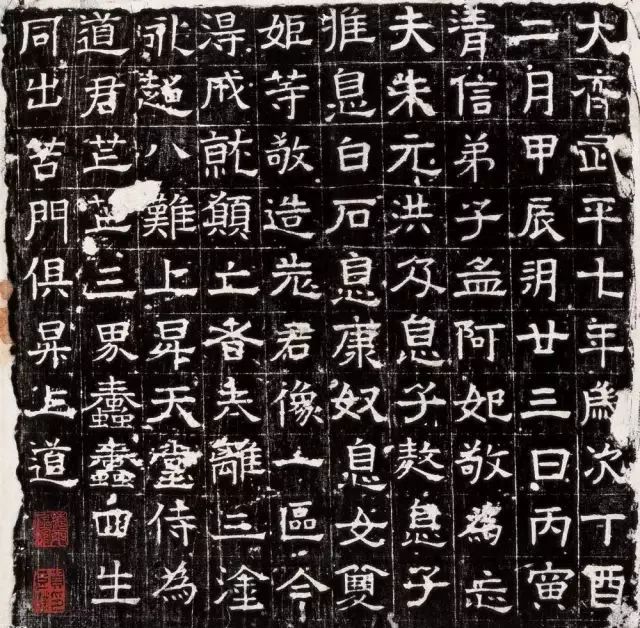 大齊武平七年歲次丁酉
二月甲辰朔廿三日丙寅
清信弟子孟阿妃敬為忘
夫朱元洪及息子敖息子
推息白石息康奴息女雙
姬等敬造老君像一區今
得成就願亡者去離三塗
永超八難上昇天堂侍為
道君芒芒三界蠢蠢四生
同出苦門俱昇上道